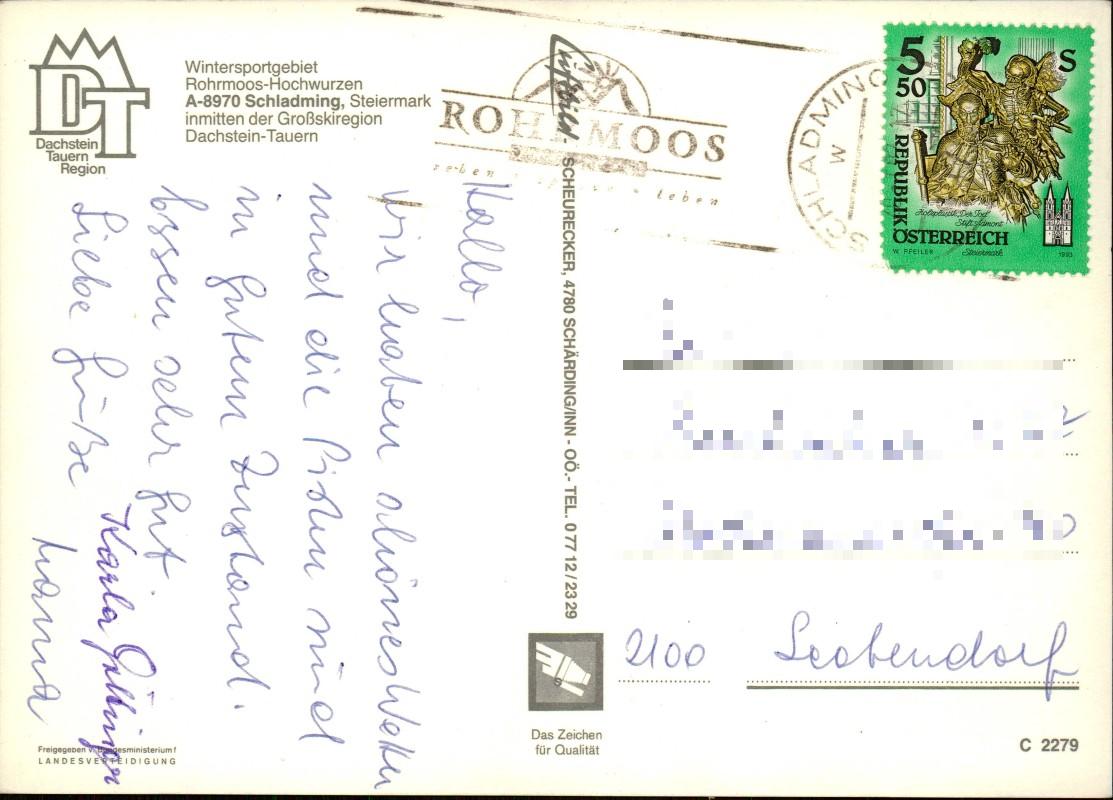 DT
Dachstein
Tauern
Region
Wintersportgebiet
Rohrmoos-Hochwurzen
A-8970 Schladming, Steiermark
inmitten der Großskiregion
Dachstein-Tauern
Hallo,
wir haben schönes Wetter
und die Pisten sind
in gutem Zustand.
Essen sehr gut.
Liebe Grüße
Hanna
Karla
Freigegeben v. Bundesministerium f
LANDESVERTEIDIGUNG
ROHRMOOS
leben
SCHLADMING
5 50 S
REPUBLIK
ÖSTERREICH
Holzplastik „Der Tod“
Stift Admont
Steiermark
W. PFEILER
1993
SCHEURECKER, 4780 SCHÄRDING/INN - OÖ.- TEL. 0 77 12 / 23 29
2100 Leobendorf
Das Zeichen
für Qualität
C 2279